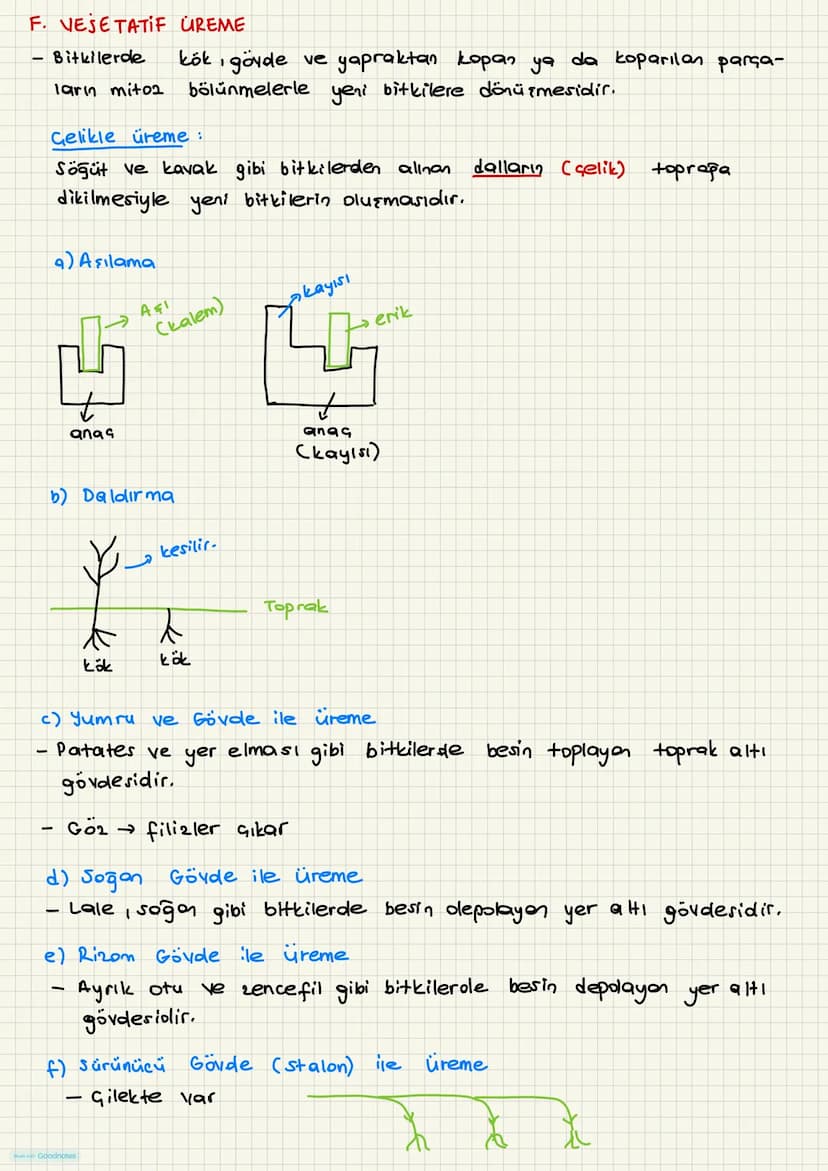 F. VEJETATİF ÜREME
- Bitkilerde kök, gövde ve yapraktan kopan ya da koparılan parça-
ların mitoz bölünmelerle yeni bitkilere dönüşmesidir.
Çelikle üreme :
Söğüt ve kavak gibi bitkilerden alınan dalların (çelik) toprağa
dikilmesiyle yeni bitkilerin oluşmasıdır.
a) Aşılama
Aşı
(kalem)
anaç
kayısı
erik
anaç
(kayısı)
b) Daldırma
kesilir.
Toprak
kök
kök
c) Yumru ve Gövde ile üreme
- Patates ve yer elması gibi bitkilerde besin toplayan toprak altı
gövdesidir.
- Göz → filizler çıkar
d) Soğan Gövde ile üreme
- Lale, soğan gibi bitkilerde besin depolayan yer altı gövdesidir.
e) Rizom Gövde ile üreme
- Ayrık otu ve zencefil gibi bitkilerde besin depolayan yer altı
gövdesidir.
f) Sürünücü Gövde (stalon) ile üreme
- Çilekte var
Made with Goodnotes